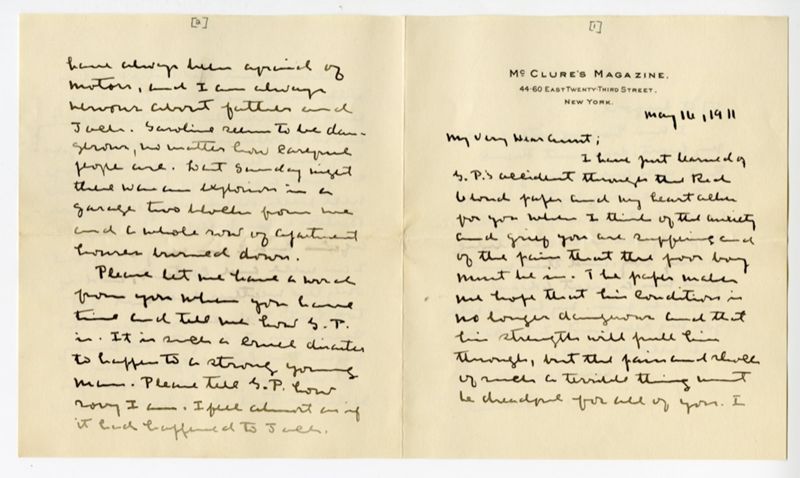 [1]
McCLURE'S MAGAZINE.
44-60 EAST TWENTY-THIRD STREET.
NEW YORK.
May 16, 1911
My Very Dear Aunt;
I have just learned of
G.P.'s accident through the Red
Cloud paper and my heart aches
for you when I think of the anxiety
and grief you are suffering and
of the pain that the poor boy
must be in. The paper makes
me hope that his condition is
no longer dangerous and that
his strength will pull him
through, but the pain and shock
of such a terrible thing must
be dreadful for all of you. I
[2]
have always been afraid of
motors, and I am always
nervous about father and
Jack. Gasoline seems to be dan-
gerous, no matter how careful
people are. Last Sunday night
there was an explosion in a
garage two blocks from me
and a whole row of apartment
houses burned down.
Please let me have a word
from you when you have
time and tell me how G.P.
is. It is such a cruel disaster
to happen to a strong young
man. Please tell G.P. how
sorry I am. I feel almost as if
it had happened to Jack.